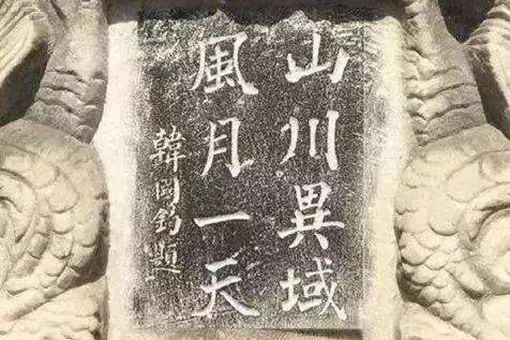 山川異域
風月一天
韓国鈞題